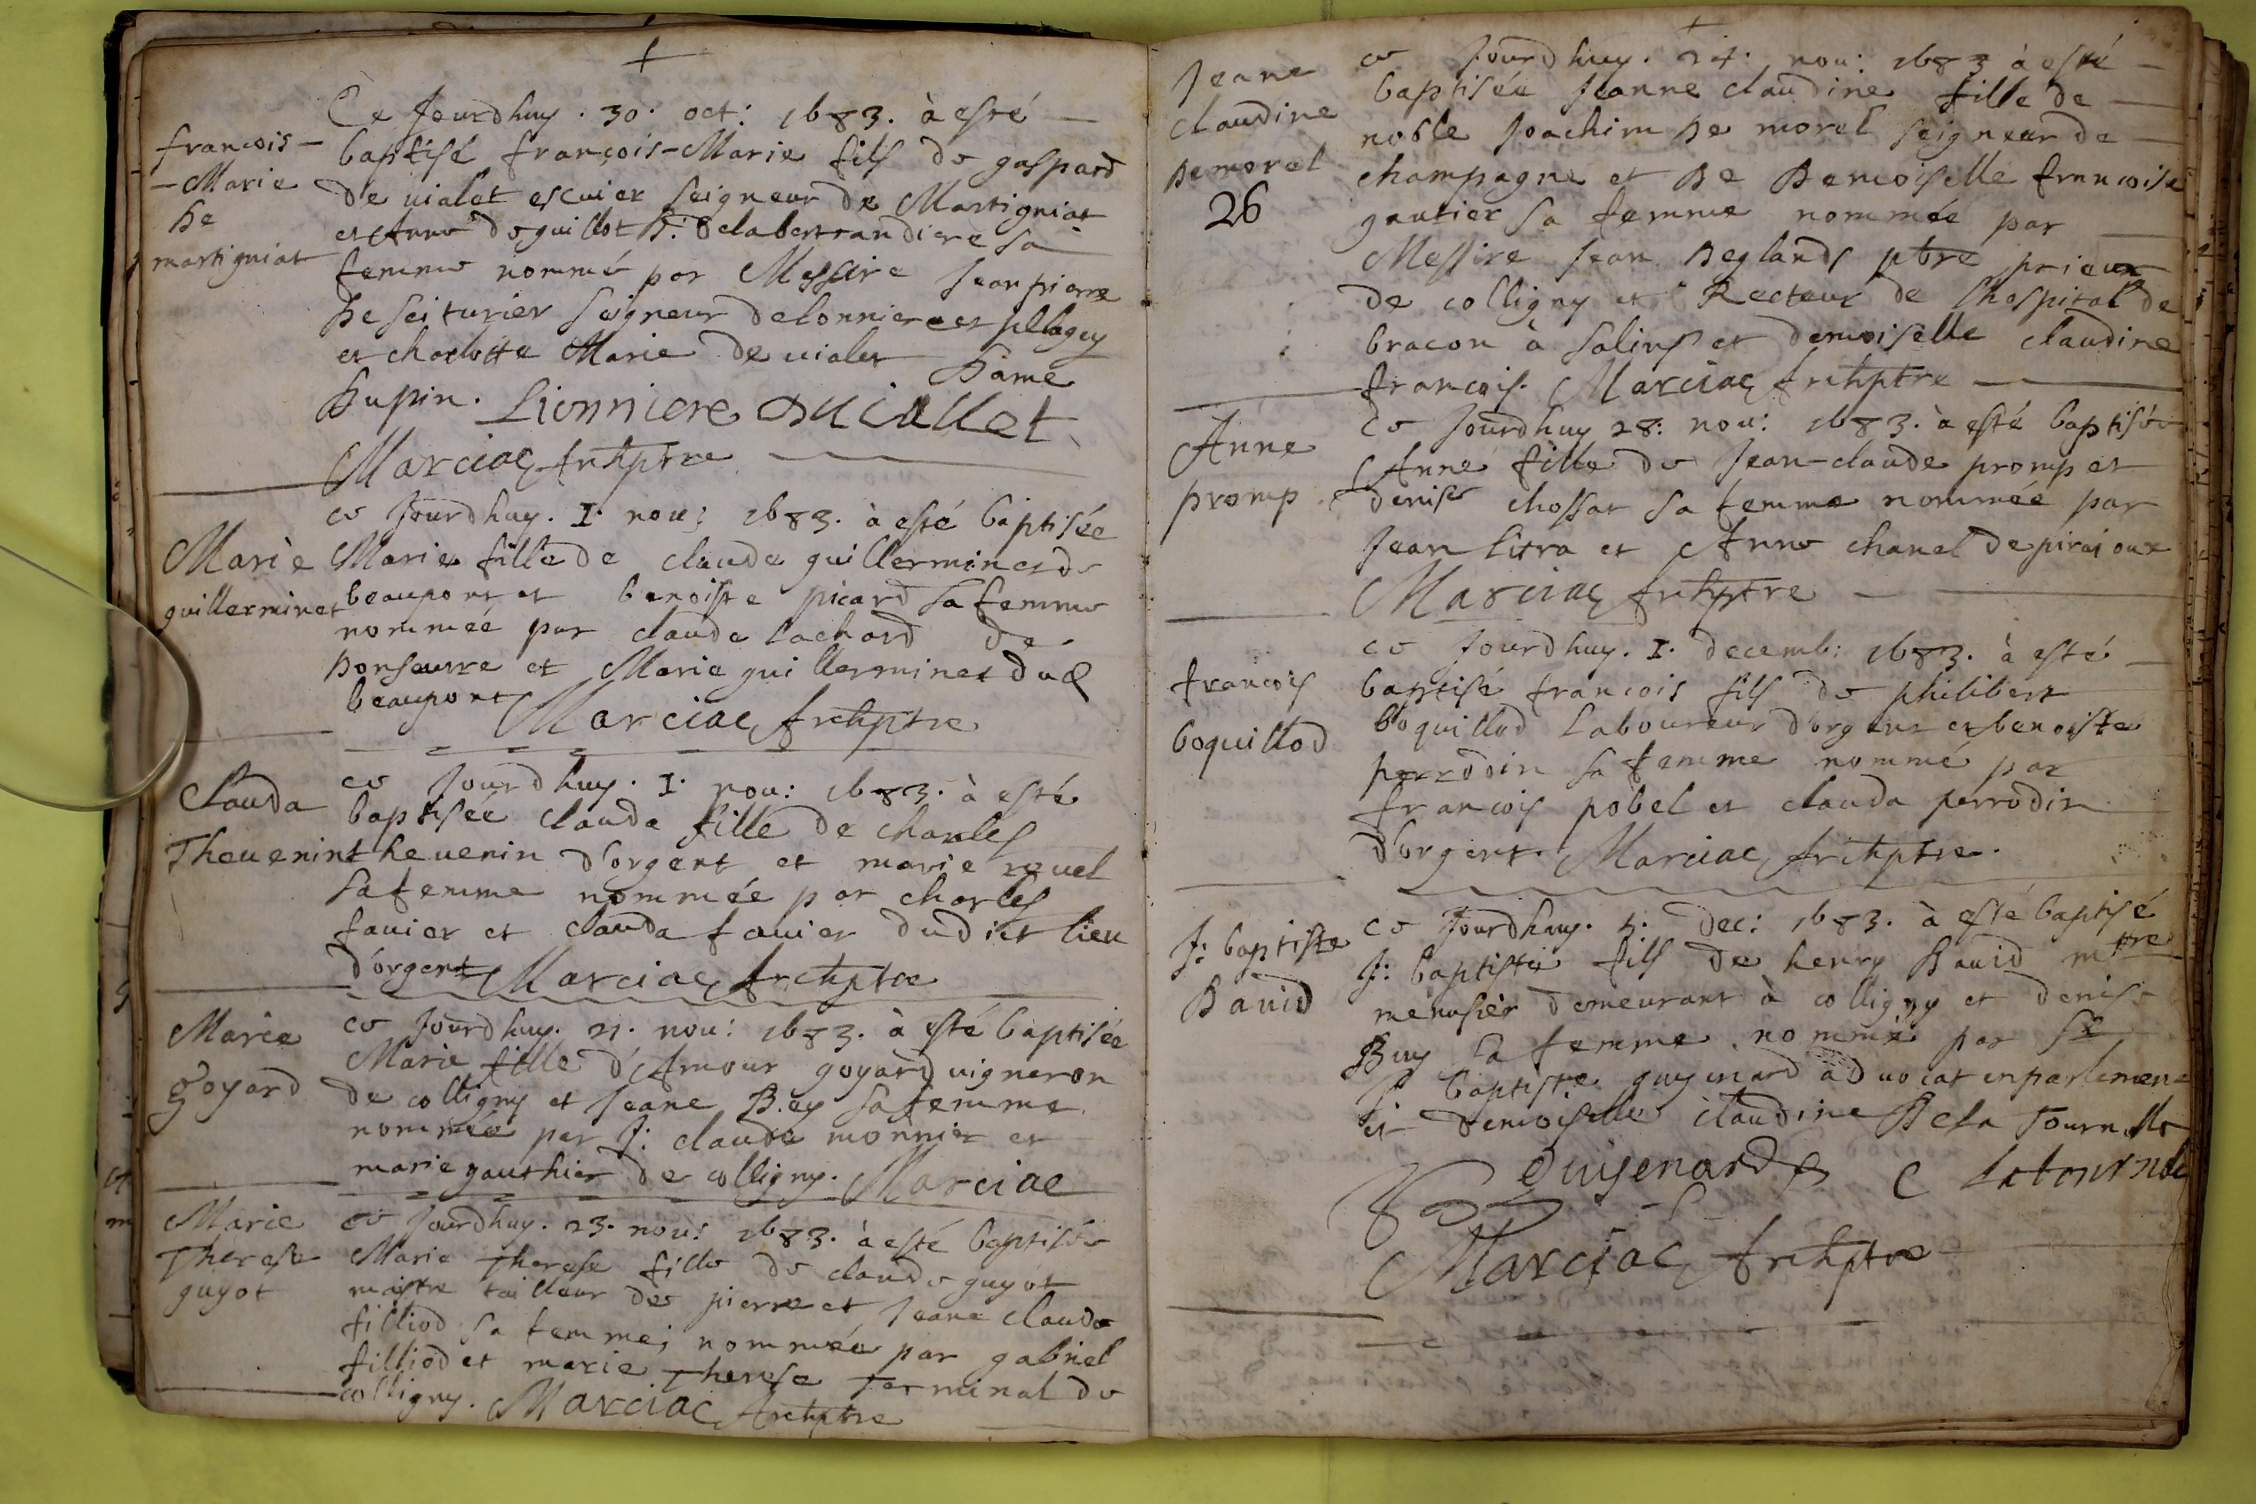 françois-
-Marie
De
martigniat
Ce Jourdhuy . 30 . oct : 1683 . à esté
baptisé françois-Marie fils de gaspard
de uialet escuier seigneur de Martigniat
et Anne deguillot D: delabertrandiere sa
femme nommé par Messire Jean pierre
De seiturier seigneur delonniere et pelagey
et charlotte Marie de uialet Dame
Dupin . Lionniere Duiallet
Marciac Archptre
Marie
guillerminet
ce Jourdhuy . I . nou : 1683 . à esté baptisée
Marie fille de claude guillerminet de
beaupont et benoiste picard sa femme
nommée par claude Cachard de
ponseurre et Marie guillerminet dud
beaupont Marciac Archptre
Clauda
Theuenin
ce Jourdhuy . I . nou : 1683 . à esté
baptisée clauda fille de charles
theuenin d'orgent et marie reuel
sa femme nommée par charles
fauier et clauda fauier dudict lieu
d'orgent Marciac Archptre
Marie
goyard
ce Jourdhuy . 21 . nou : 1683 . à esté baptisée
Marie fille d'Amour goyard uigneron
de colligny et Jeane Bey sa femme
nommée par J: claude monnier et
marie gauthier de colligny . Marciac
Marie
Therese
guyot
ce Jourdhuy . 23 . nou : 1683 . à esté baptisée
Marie Therese fille de claude guyot
maistre tailleur de pierre et Jeane clauda
filliod sa femme ; nommée par gabriel
filliod et marie Therese terminal de
colligny . Marciac Archptre
Jeane
claudine
Demorel
26
ce Jourdhuy . 24 . nou : 1683 à esté
baptisée Jeanne claudine fille de
noble Joachim De morel seigneur de
champagne et De Demoiselle francoise
gautier sa femme nommée par
Messire Jean Deglands ptre prieur
de colligny et Recteur de l'hospital de
bracon à salins et demoiselle claudine
francois . Marciac Archptre
Anne
promp
ce Jourdhuy 28 : nou : 1683 . à esté baptisée
Anne fille de Jean-claude promp et
denise chossat sa femme nommée par
Jean litra et Anne chanel de piraioux
Marciac Archptre
francois
boquillod
ce Jourdhuy . I . decemb : 1683 . à esté
baptisé francois fils de philibert
boquillod Laboureur d'orgent et benoiste
perrodin sa femme nommé par
francois pobel et clauda perrodin
d'orgent . Marciac Archptre .
J: baptiste
Dauid
ce Jourdhuy . 5 . dec : 1683 . à esté baptisé
J: baptiste fils de henry Dauid mtre
menusier demeurant à colligny et denise
Buy sa femme nommé par Sr
J baptiste guyenard aduocat en parlement
et demoiselle claudine Dela Tournelle
Guyenard C Latournelle
Marciac Archptre